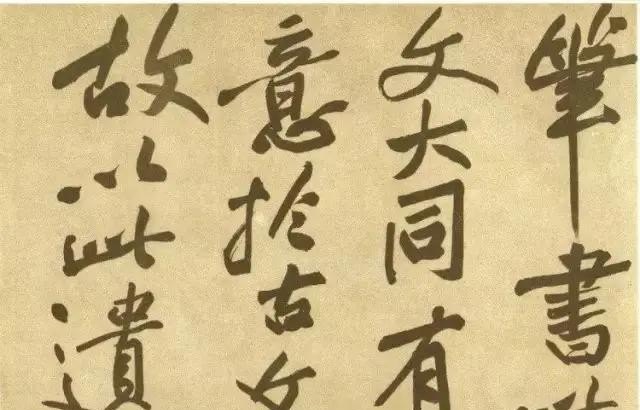 筆書
文大同有
意於古文
故以此遺